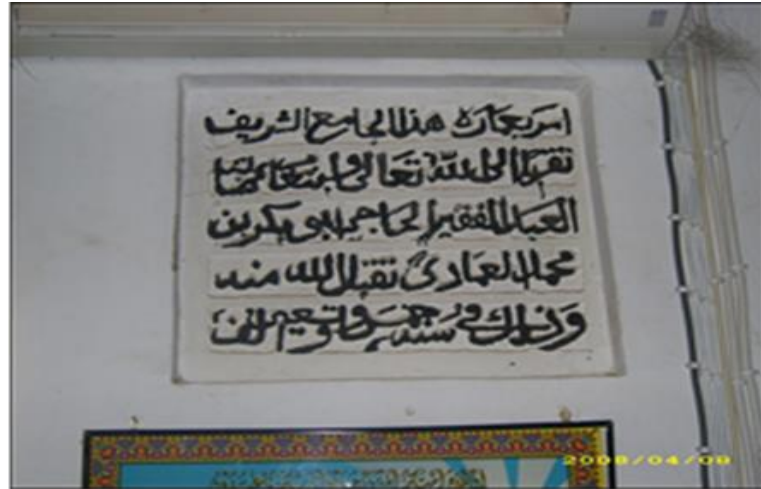 امر بعمارة هذا الجامع الشريف
تقربا الى الله تعالى وابتغاء مرضاته
العبد الفقير الحاجي ابي بكر بن
محمد العمادي تقبل الله منه
وذلك في سنة وتسعين الف
2008/04/08